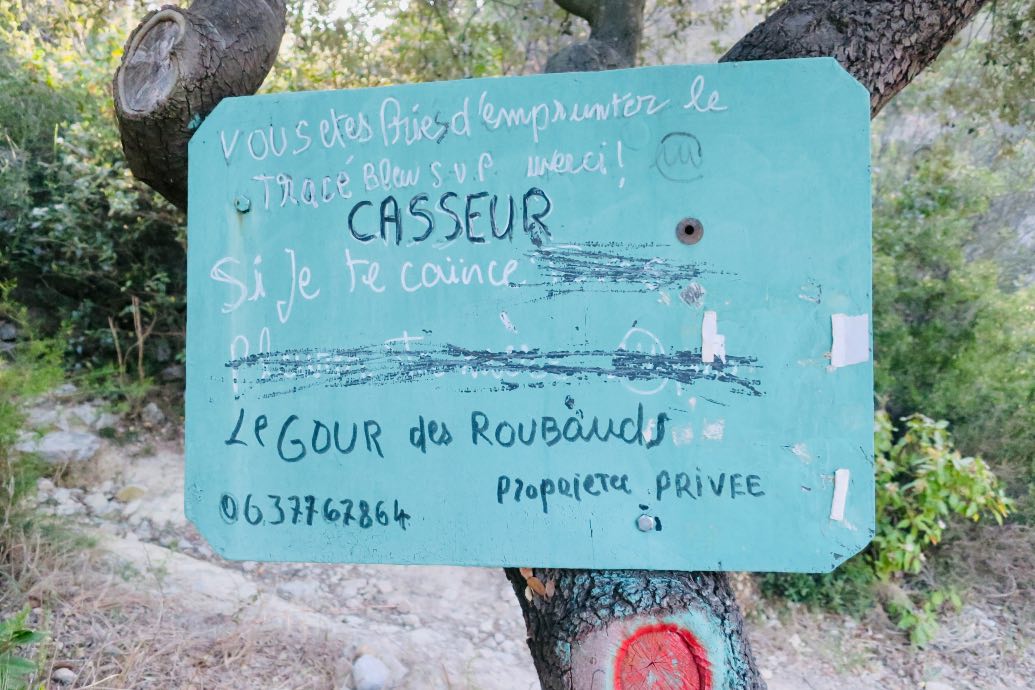 VOUS etes Priés d'emprunter le
TRACÉ Bleu S.V.P merci!
CASSEUR
Si Je te caïnce
Le GOUR des ROUBauds
Propeietee PRIVEE
0637767864